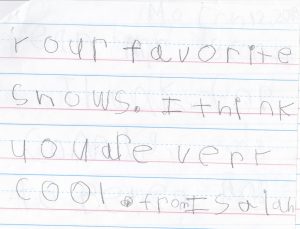 rour favorite
snows. I think
you are verr
cool. from Isaiah